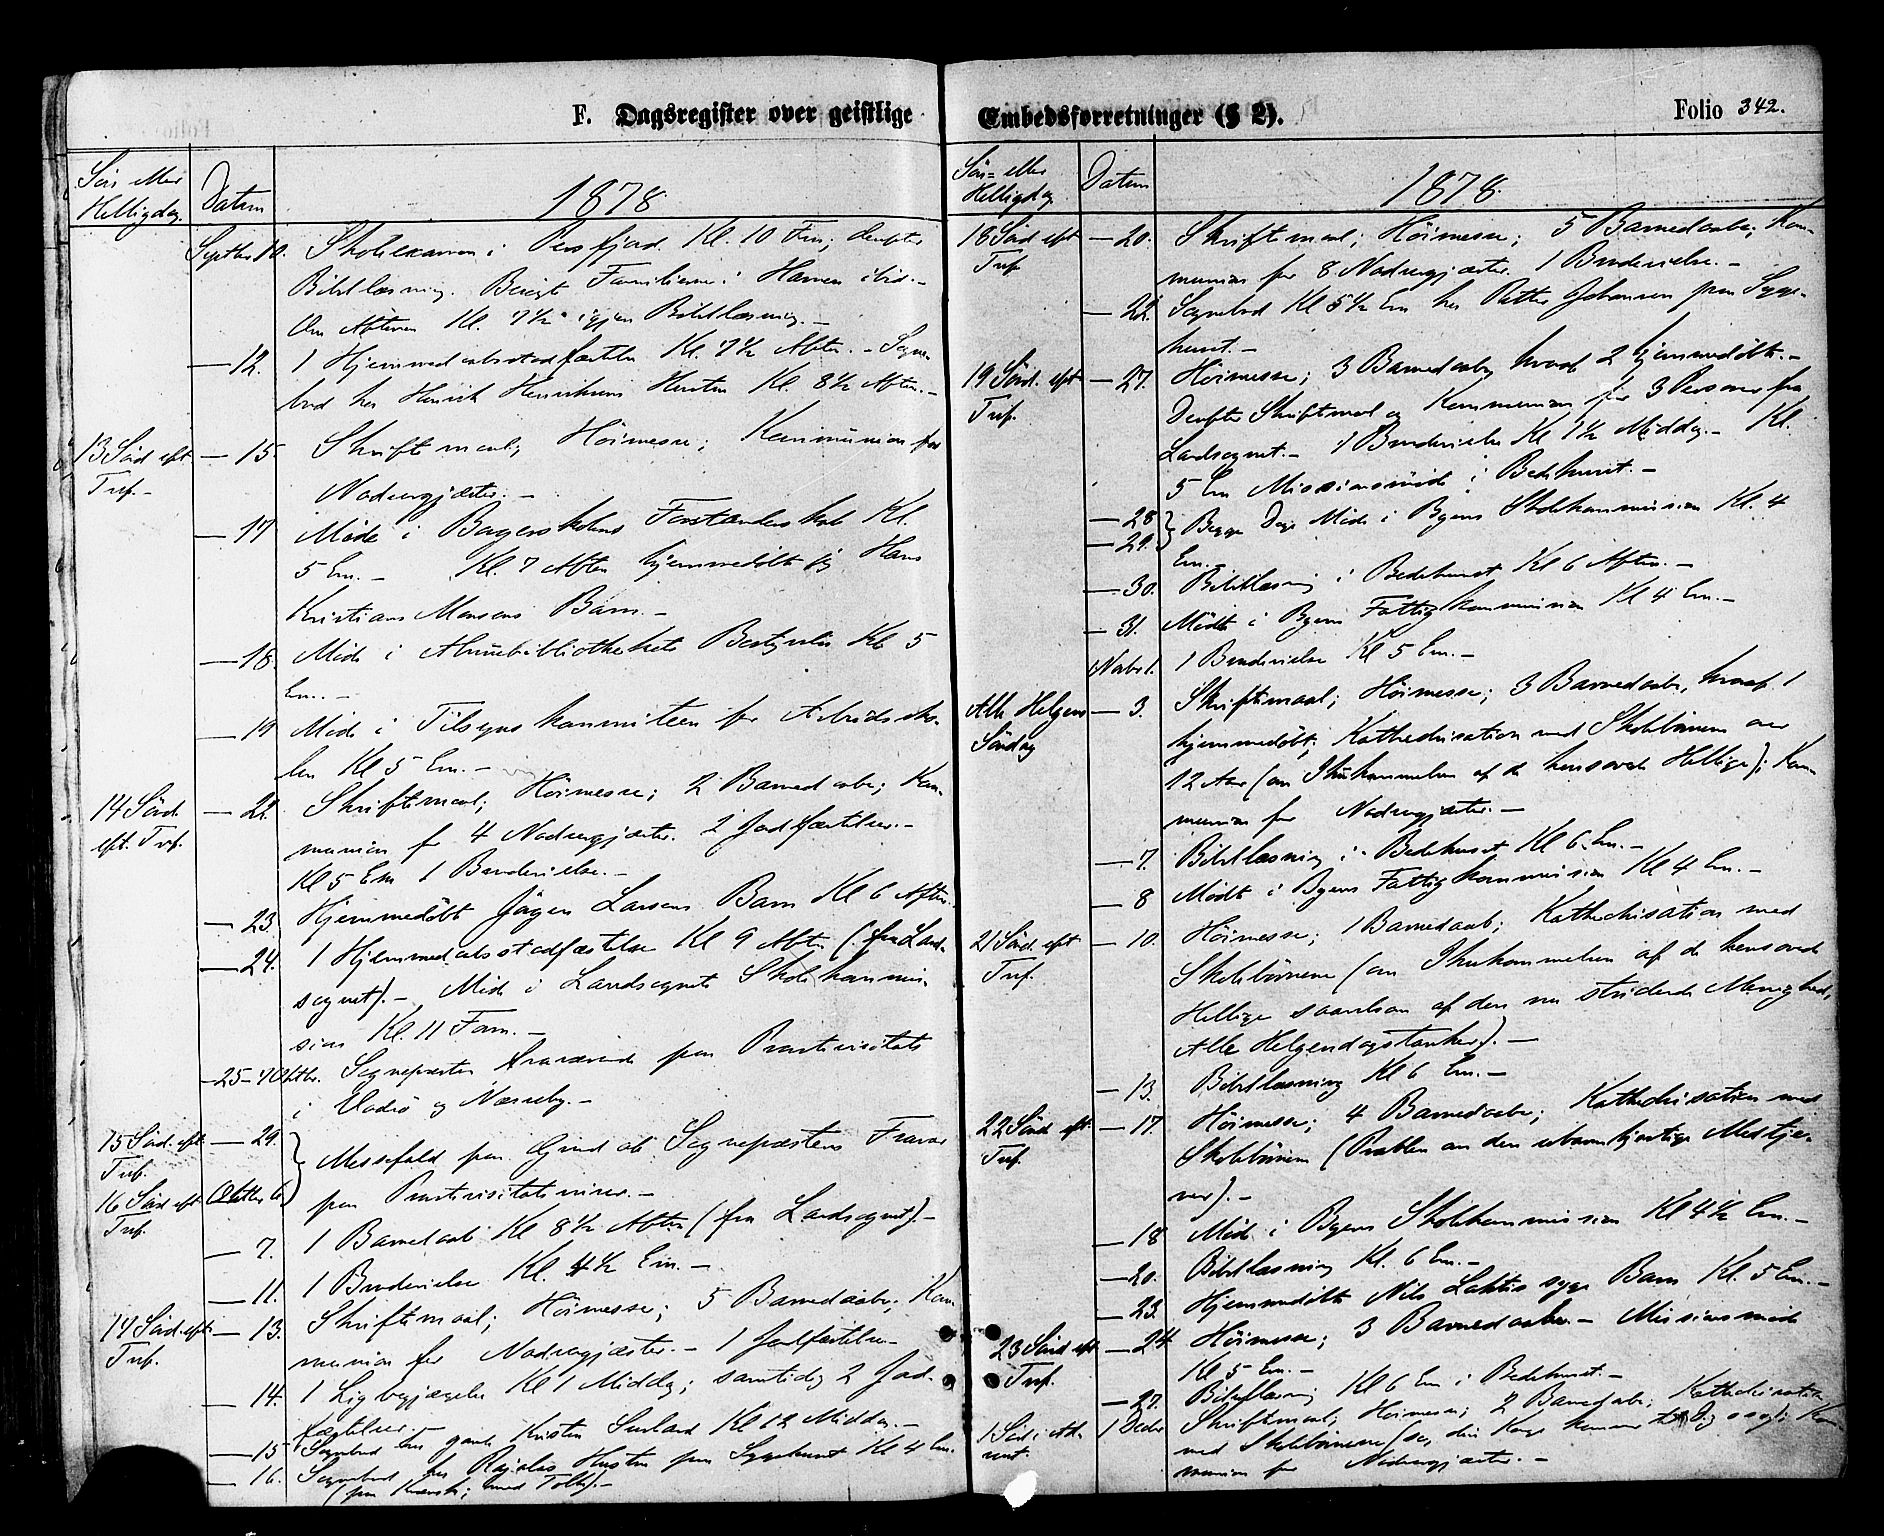 F. Dagsregister over geistlige
Søn eller Helligdag. Datum 1878
Septbr. 10. Skoleexamen i Persfjord Kl. 10 Fm; derefter
Bibellæsning. Besøgte Familierne i Havnen ibid.-
Om Aftenen Kl. 7½ igjen Bibellæsning.-
- 12. 1 Hjemmedaabsstadfæstelse Kl. 7½ Aften.- Sogne-
bud hos Henrik Henriksens Hustru Kl. 8½ Aften.-
13 Sønd eft Tref.- - 15. Skriftemaal; Höimesse; Kommunion for
Nadvergjæster.-
- 17. Møde i Borgerskolens Forstanderskab Kl.
5 Em.- Kl. 7 Aften hjemmedöbt jeg Hans
Kristian Monsens Barn.-
- 18. Møde i Almuebibliothekets Bestyrelse Kl 5
Em.-
- 19 Møde i Tilsynskommiteen for Arbeidssko-
len Kl 5 Em.-
14 Sönd. eft. Tref. - 22. Skriftemaal; Höimesse; 2 Barnedaabe; Kom-
munion for 4 Nadvergjæster. 2 Jordfæstelser.-
Kl 5 Em 1 Brudevielse.-
- 23. Hjemmedöbt Jörgen Larsens Barn Kl 6 Aften.
- 24. 1 Hjemmedaabsstadfæstelse Kl 9 Aften (fra Land-
sognet).- Møde i Landsognets Skolekommis-
sion Kl. 11 Form.-
- 25-4 Oktbr. Sognepræsten fraværende paa Provstevisitats
i Vadsö og Næsseby.-
15 Sönd. eft. Tref. - 29.
Messefald paa Grund af Sognepræstens Fravær
16 Sönd eft Tref. Oktbr 6.
paa Provstevisitatsreise.-
- 7. 1 Barnedaab Kl 8½ Aften (fra Landsognet).-
- 11. 1 Brudevielse Kl. 4½ Em.-
17 Sönd. eft. Tref. - 13. Skriftemaal; Höimesse; 5 Barnedaabe; Kom-
munion for Nadvergjæster.- 1 Jordfæstelse-
- 14. 1 Ligbegjængelse Kl 1 Middag; samtidig 2 Jord-
fæstelser.-
- 15 Sognebud hos gamle Kirsten Kl 12 Middag.-
- 16. Sognebud hos Hustru paa Sygehuset Kl 4 Em.
(paa Kvænsk; med Tolk).-
Embedsforretninger (§ 2). Folio 342.
Søn- eller Helligdag Datum 1878.
18 Sönd eft Tref. - 20. Skriftemaal; Höimesse; 5 Barnedaabe; Kom-
munion for 8 Nadvergjæster. 1 Brudevielse.-
- 22. Sognebud Kl 5½ Em hos Petter Johansen paa Syge-
huset.-
19 Sönd. eft Tref. - 27. Höimesse; 3 Barnedaabe, hvoraf 2 hjemmedöbte.-
Derefter Skriftemaal og Kommunion for 3 Personer fra
Landsognet.- 1 Brudevielse Kl 1½ Middag.- Kl.
5 Em Missionsmöde i Bedehuset.-
- 28 - 29. Begge Dage Møde i Byens Skolekommission Kl. 4
Em.-
- 30. Bibellæsning i Bedehuset Kl 6 Aften.-
- 31. Mödte i Byens Fattigkommission Kl 4 Em.-
Novbr 1. 1 Brudevielse Kl 5 Em.-
Alle Helgens Söndag - 3. Skriftemaal; Höimesse; 3 Barnedaabe, hvoraf 1
hjemmedöbt; Kathechisation med Skolebörnene over
12 Aar (om Ihukommelsen af de hensovede Hellige); Kom-
munion for Nadvergjæster.-
- 7. Bibellæsning i Bedehuset Kl 6 Em.-
- 8 Mödt i Byens Fattigkommission Kl 4 Em.-
21 Sönd. eft Tref. - 10. Höimesse; 1 Barnedaab; Kathechisation med
Skolebörnene (om Ihukommelsen af de hensovede
Hellige saavelsom af den nu stridende Menighed,
Alle Helgendagstanker).-
- 13. Bibellæsning Kl 6 Em.-
22 Sönd eft. Tref. - 17. Höimesse; 4 Barnedaabe; Kathechisation med
Skolebörnene (Prækken om den ubarmhjertige Medtje-
ner).-
- 18 Møde i Byens Skolekommission Kl 4½ Em.-
- 20. Bibellæsning Kl. 6 Em.-
- 23. Hjemmedöbte Nils syge Barn Kl. 5 Em.-
23 Sönd eft Tref. - 24 Höimesse; 3 Barnedaabe.- Missionsmöde
Kl 5 Em.-
- 27. Bibellæsning Kl 6 Em i Bedehuset.-
1 Sönd i Advent. 1 Decbr Skriftemaal; Höimesse; 2 Barnedaabe; Kathechisation
med Skolebörnene (se, din Konge kommer til Dig); Kom-
munion for Nadvergjæster.-